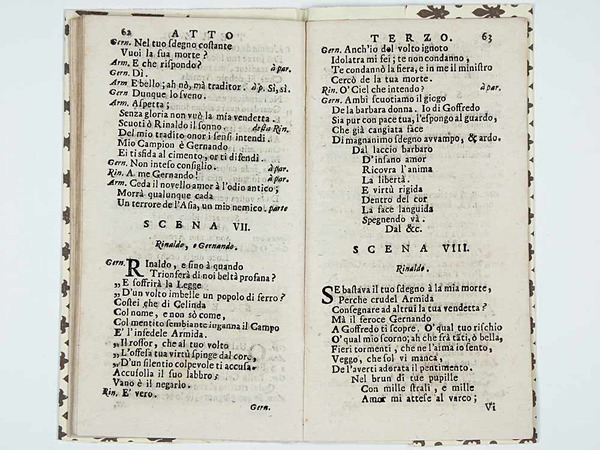 62 ATTO
Gern. Nel tuo sdegno costante
Vuoi la sua morte?
Arm. E che rispondo? à par.
Gern. Dì.
Arm. E' bello; ah nò, mà traditor. à p. Sì, sì.
Gern Dunque lo sveno.
Arm. Aspetta;
Senza gloria non vuò la mia vendetta.
Scuoti à Rinaldo il sonno. desta Rin.
Del mio tradito onor i sensi intendi.
Mio Campion è Gernando
Ei ti sfida al cimento, or ti difendi.
Gern. Non inteso consiglio. à par.
Rin. A me Gernando! à par.
Arm. Ceda il novello amor à l'odio antico;
Morrà qualunque cada
Un terrore de l'Asia, un mio nemico. parte
SCENA VII.
Rinaldo, e Gernando.
Gern. Rinaldo, e fino à quando
Trionferà di noi beltà profana?
„E soffrirà la Legge
„D'un volto imbelle un popolo di ferro?
Costei che di Celinda
Col nome, e non sò come,
Col mentito sembiante inganna il Campo
E' l'infedele Armida.
„Il rossor, che al tuo volto
„L'offesa tua virtù spinge dal core,
„D'un silentio colpevole ti accusa.
Accusolla il suo labbro;
Vano è il negarlo.
Rin. E' vero.
Gern.
TERZO. 63
Gern. Anch'io del volto ignoto
Idolatra mi fei; te non condanno,
Te condannò la fiera, e in me il ministro
Cercò de la tua morte.
Rin. O' Ciel che intendo? à par.
Gern. Ambi scuotiamo il giogo
De la barbara donna. Io di Goffredo
Sia pur con pace tua, l'espongo al guardo,
Che già cangiata face
Di magnanimo sdegno avvampo, & ardo.
Dal laccio barbaro
D'insano amor
Ricovra l'anima
La libertà.
E virtù rigida
Dentro del cor
La face languida
Spegnendo và.
Dal &c.
SCENA VIII.
Rinaldo.
SE bastava il tuo sdegno à la mia morte,
Perche crudel Armida
Consegnare ad altrui la tua vendetta?
Mà il feroce Gernando
A Goffredo ti scopre. O' qual tuo rischio
O' qual mio scorno; ah che frà tãti, ò bella,
Fieri tormenti, che ne l'alma io sento,
Veggo, che sol vi manca,
De l'averti adorata il pentimento.
Nel brun di tue pupille
Con mille strali, e mille
Amor mi attese al varco;
Vi